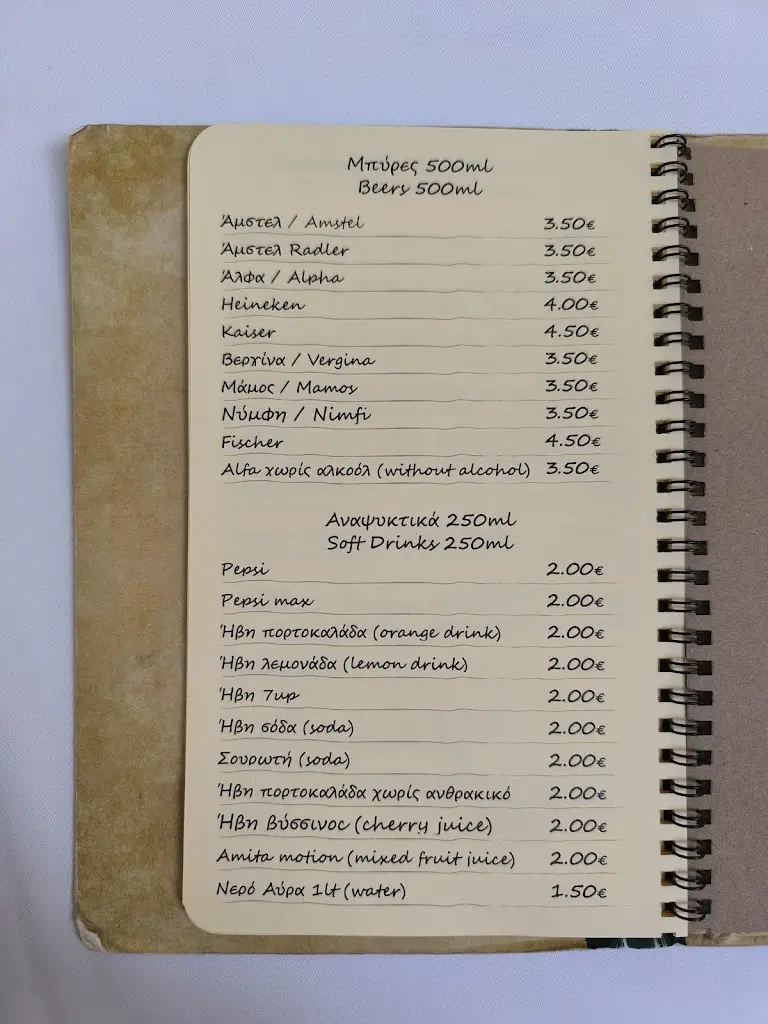 Μπύρες 500ml
Beers 500ml
Άμστελ / Amstel 3.50€
Άμστελ Radler 3.50€
Άλφα / Alpha 3.50€
Heineken 4.00€
Kaiser 4.50€
Βεργίνα / Vergina 3.50€
Μάμος / Mamos 3.50€
Νύμφη / Nimfi 3.50€
Fischer 4.50€
Alfa χωρίς αλκοόλ (without alcohol) 3.50€
Αναψυκτικά 250ml
Soft Drinks 250ml
Pepsi 2.00€
Pepsi max 2.00€
Ήβη πορτοκαλάδα (orange drink) 2.00€
Ήβη λεμονάδα (lemon drink) 2.00€
Ήβη 7up 2.00€
Ήβη σόδα (soda) 2.00€
Σουρωτή (soda) 2.00€
Ήβη πορτοκαλάδα χωρίς ανθρακικό 2.00€
Ήβη βύσσινος (cherry juice) 2.00€
Amita motion (mixed fruit juice) 2.00€
Νερό Αύρα 1lt (water) 1.50€